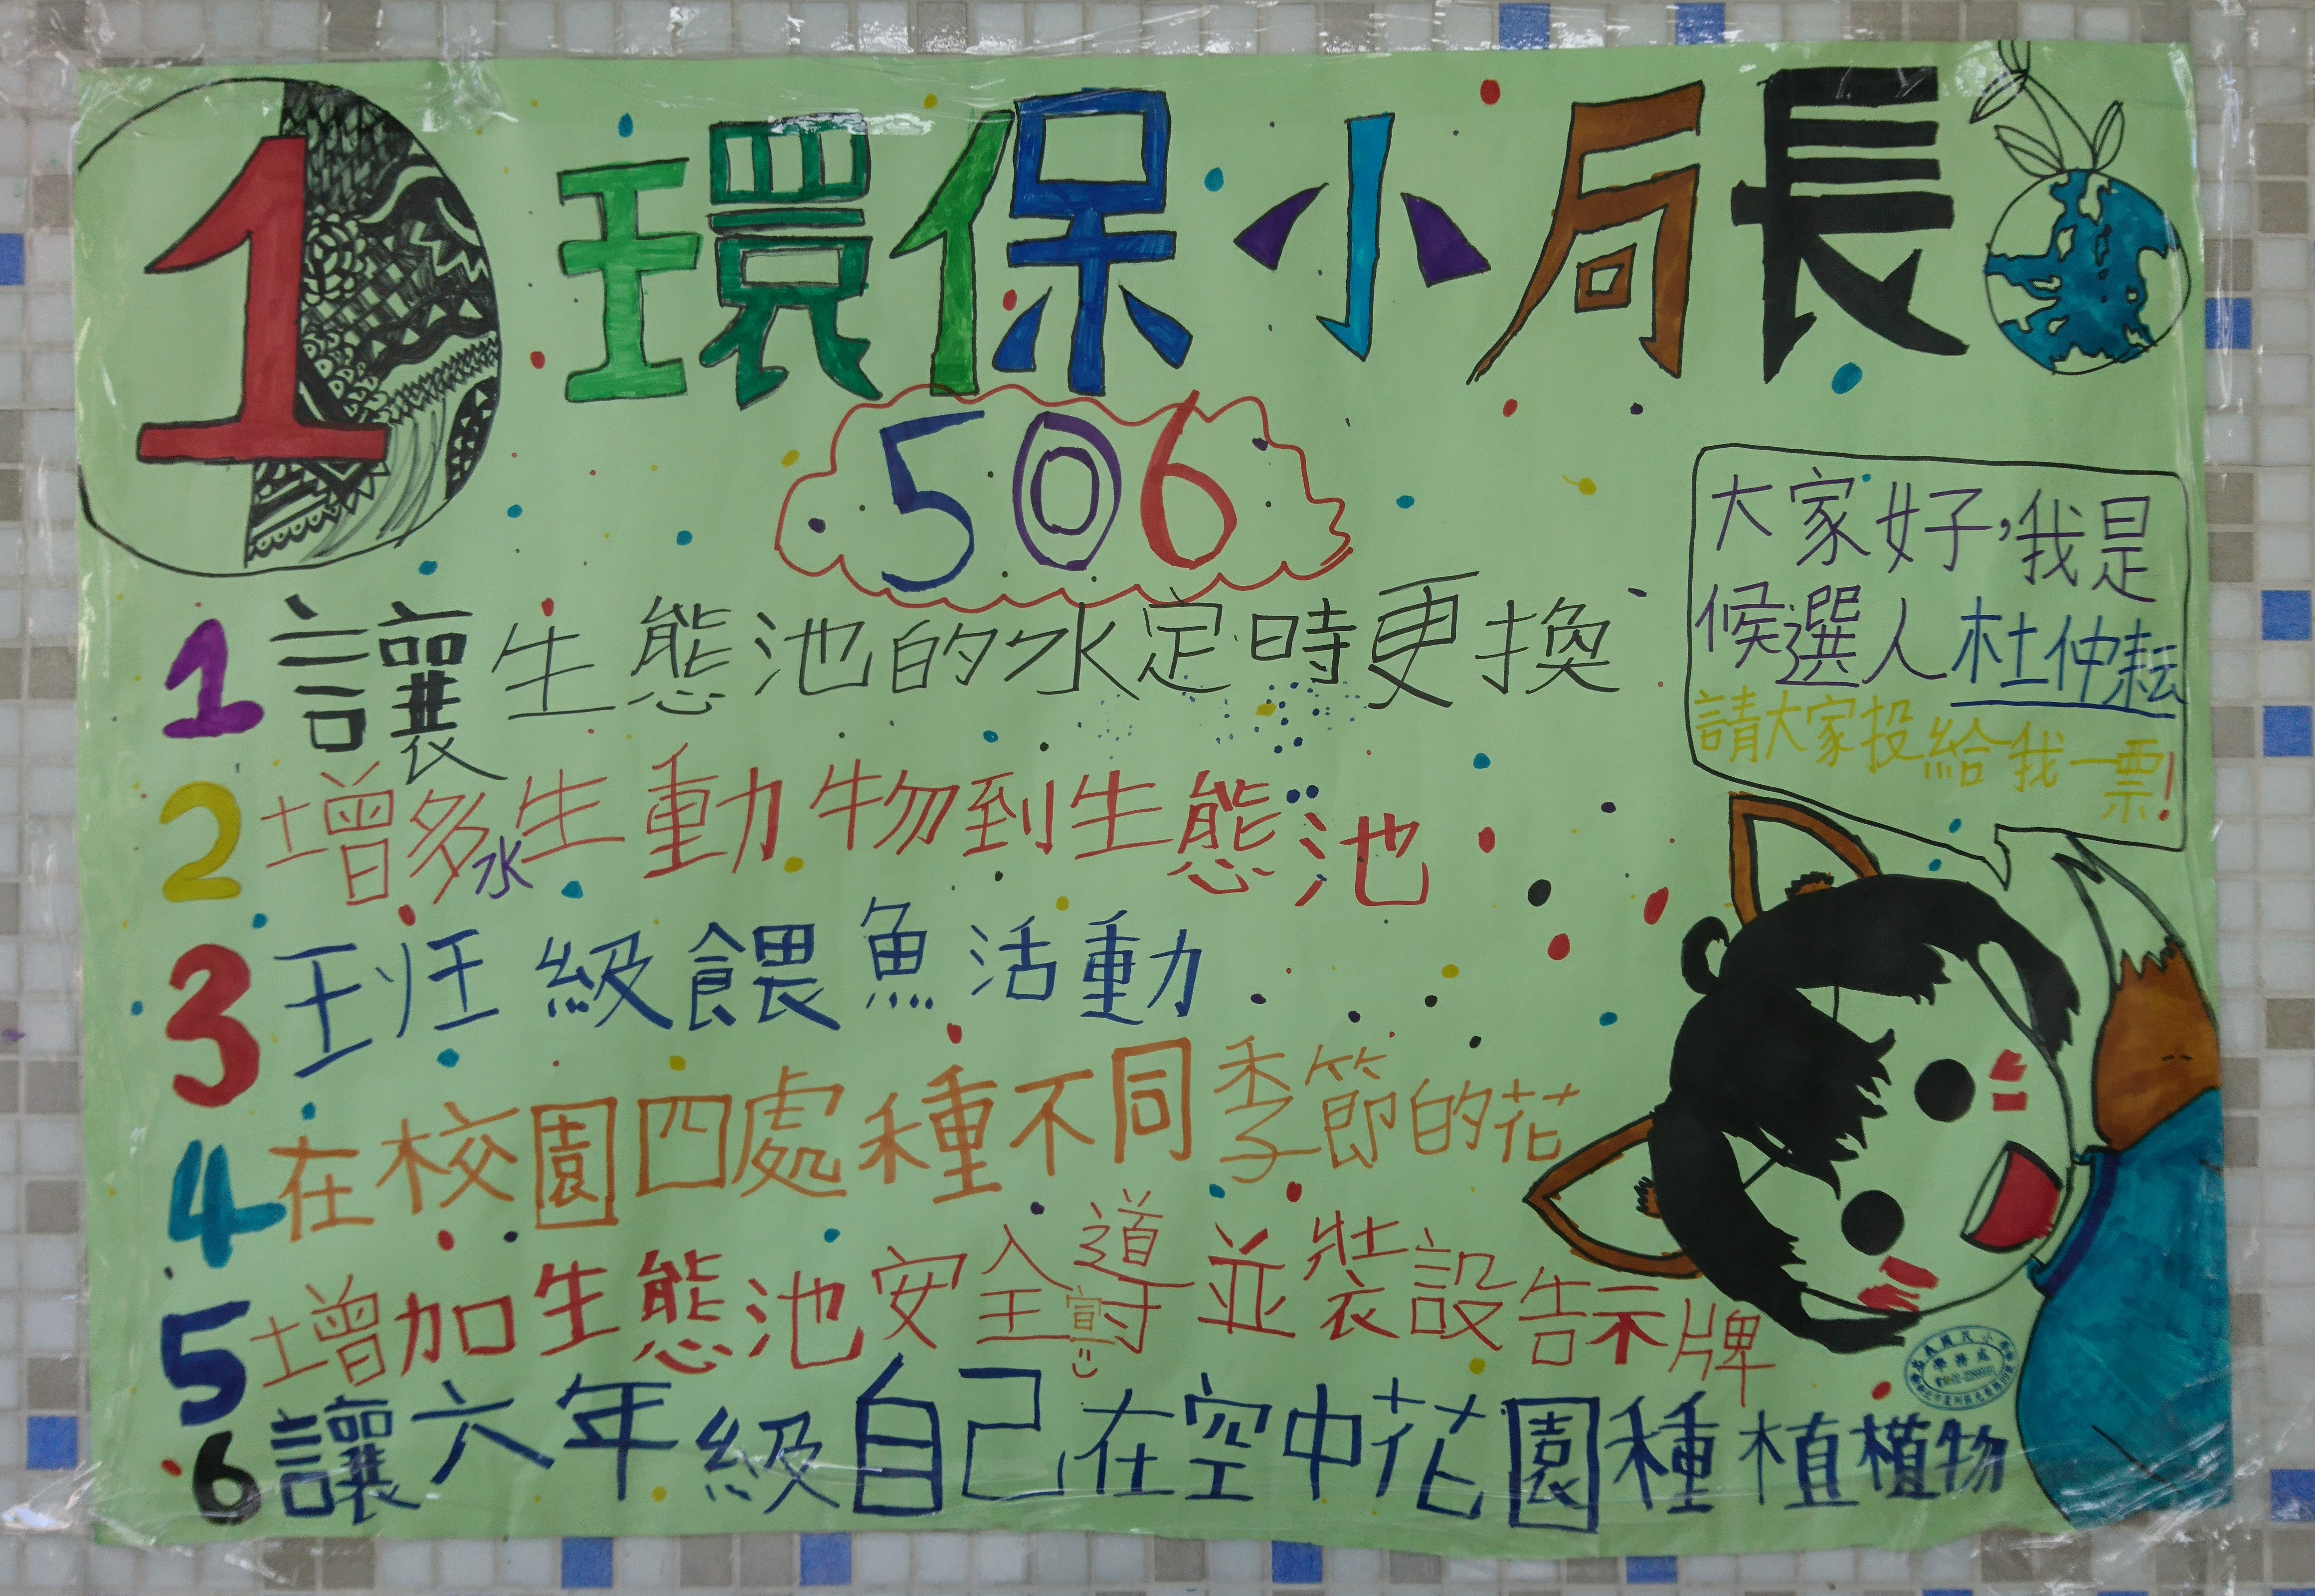 1
環保小局長
506
大家好,我是
候選人杜仲耘
請大家投給我一票!
1 讓生態池的水定時更換
2 增多水生動物到生態池
3 班級餵魚活動
4 在校園四處種不同季節的花
5 增加生態池安全導並裝設告示牌
6 讓六年級自己在空中花園種植植物
學務處